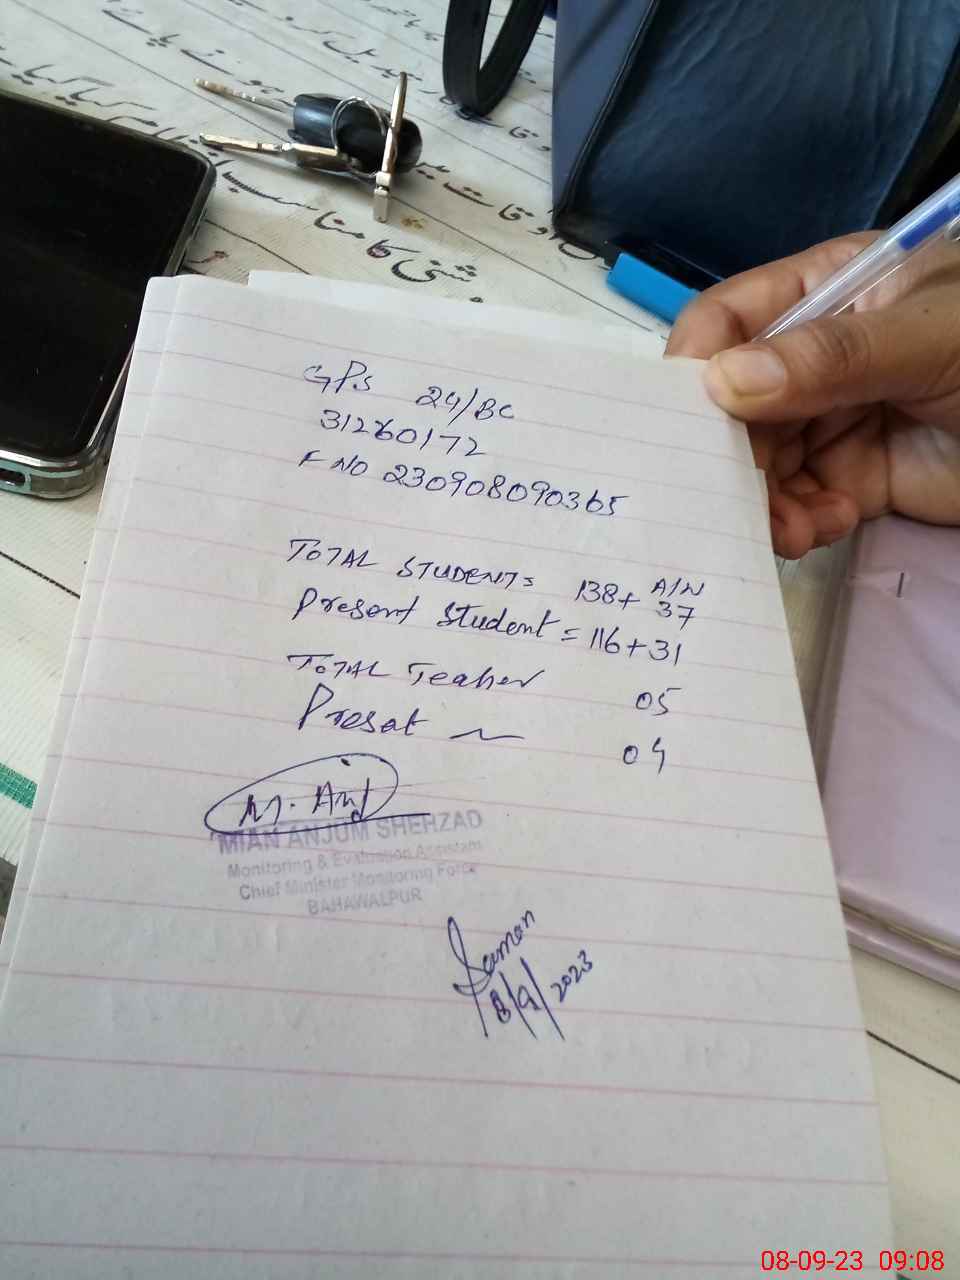 شنی کا مناسب
GPS 24/BC
31260172
F NO 230908090365
A/N
TOTAL STUDENTS 138+ 37
Present Student = 116+31
TOTAL Teaher 05
Presat ~ 04
M. Anj
MIAN ANJUM SHEHZAD
Monitoring & Evaluation Assistant
Chief Minister Monitoring Force
BAHAWALPUR
Saman
8/9/2023
08-09-23 09:08